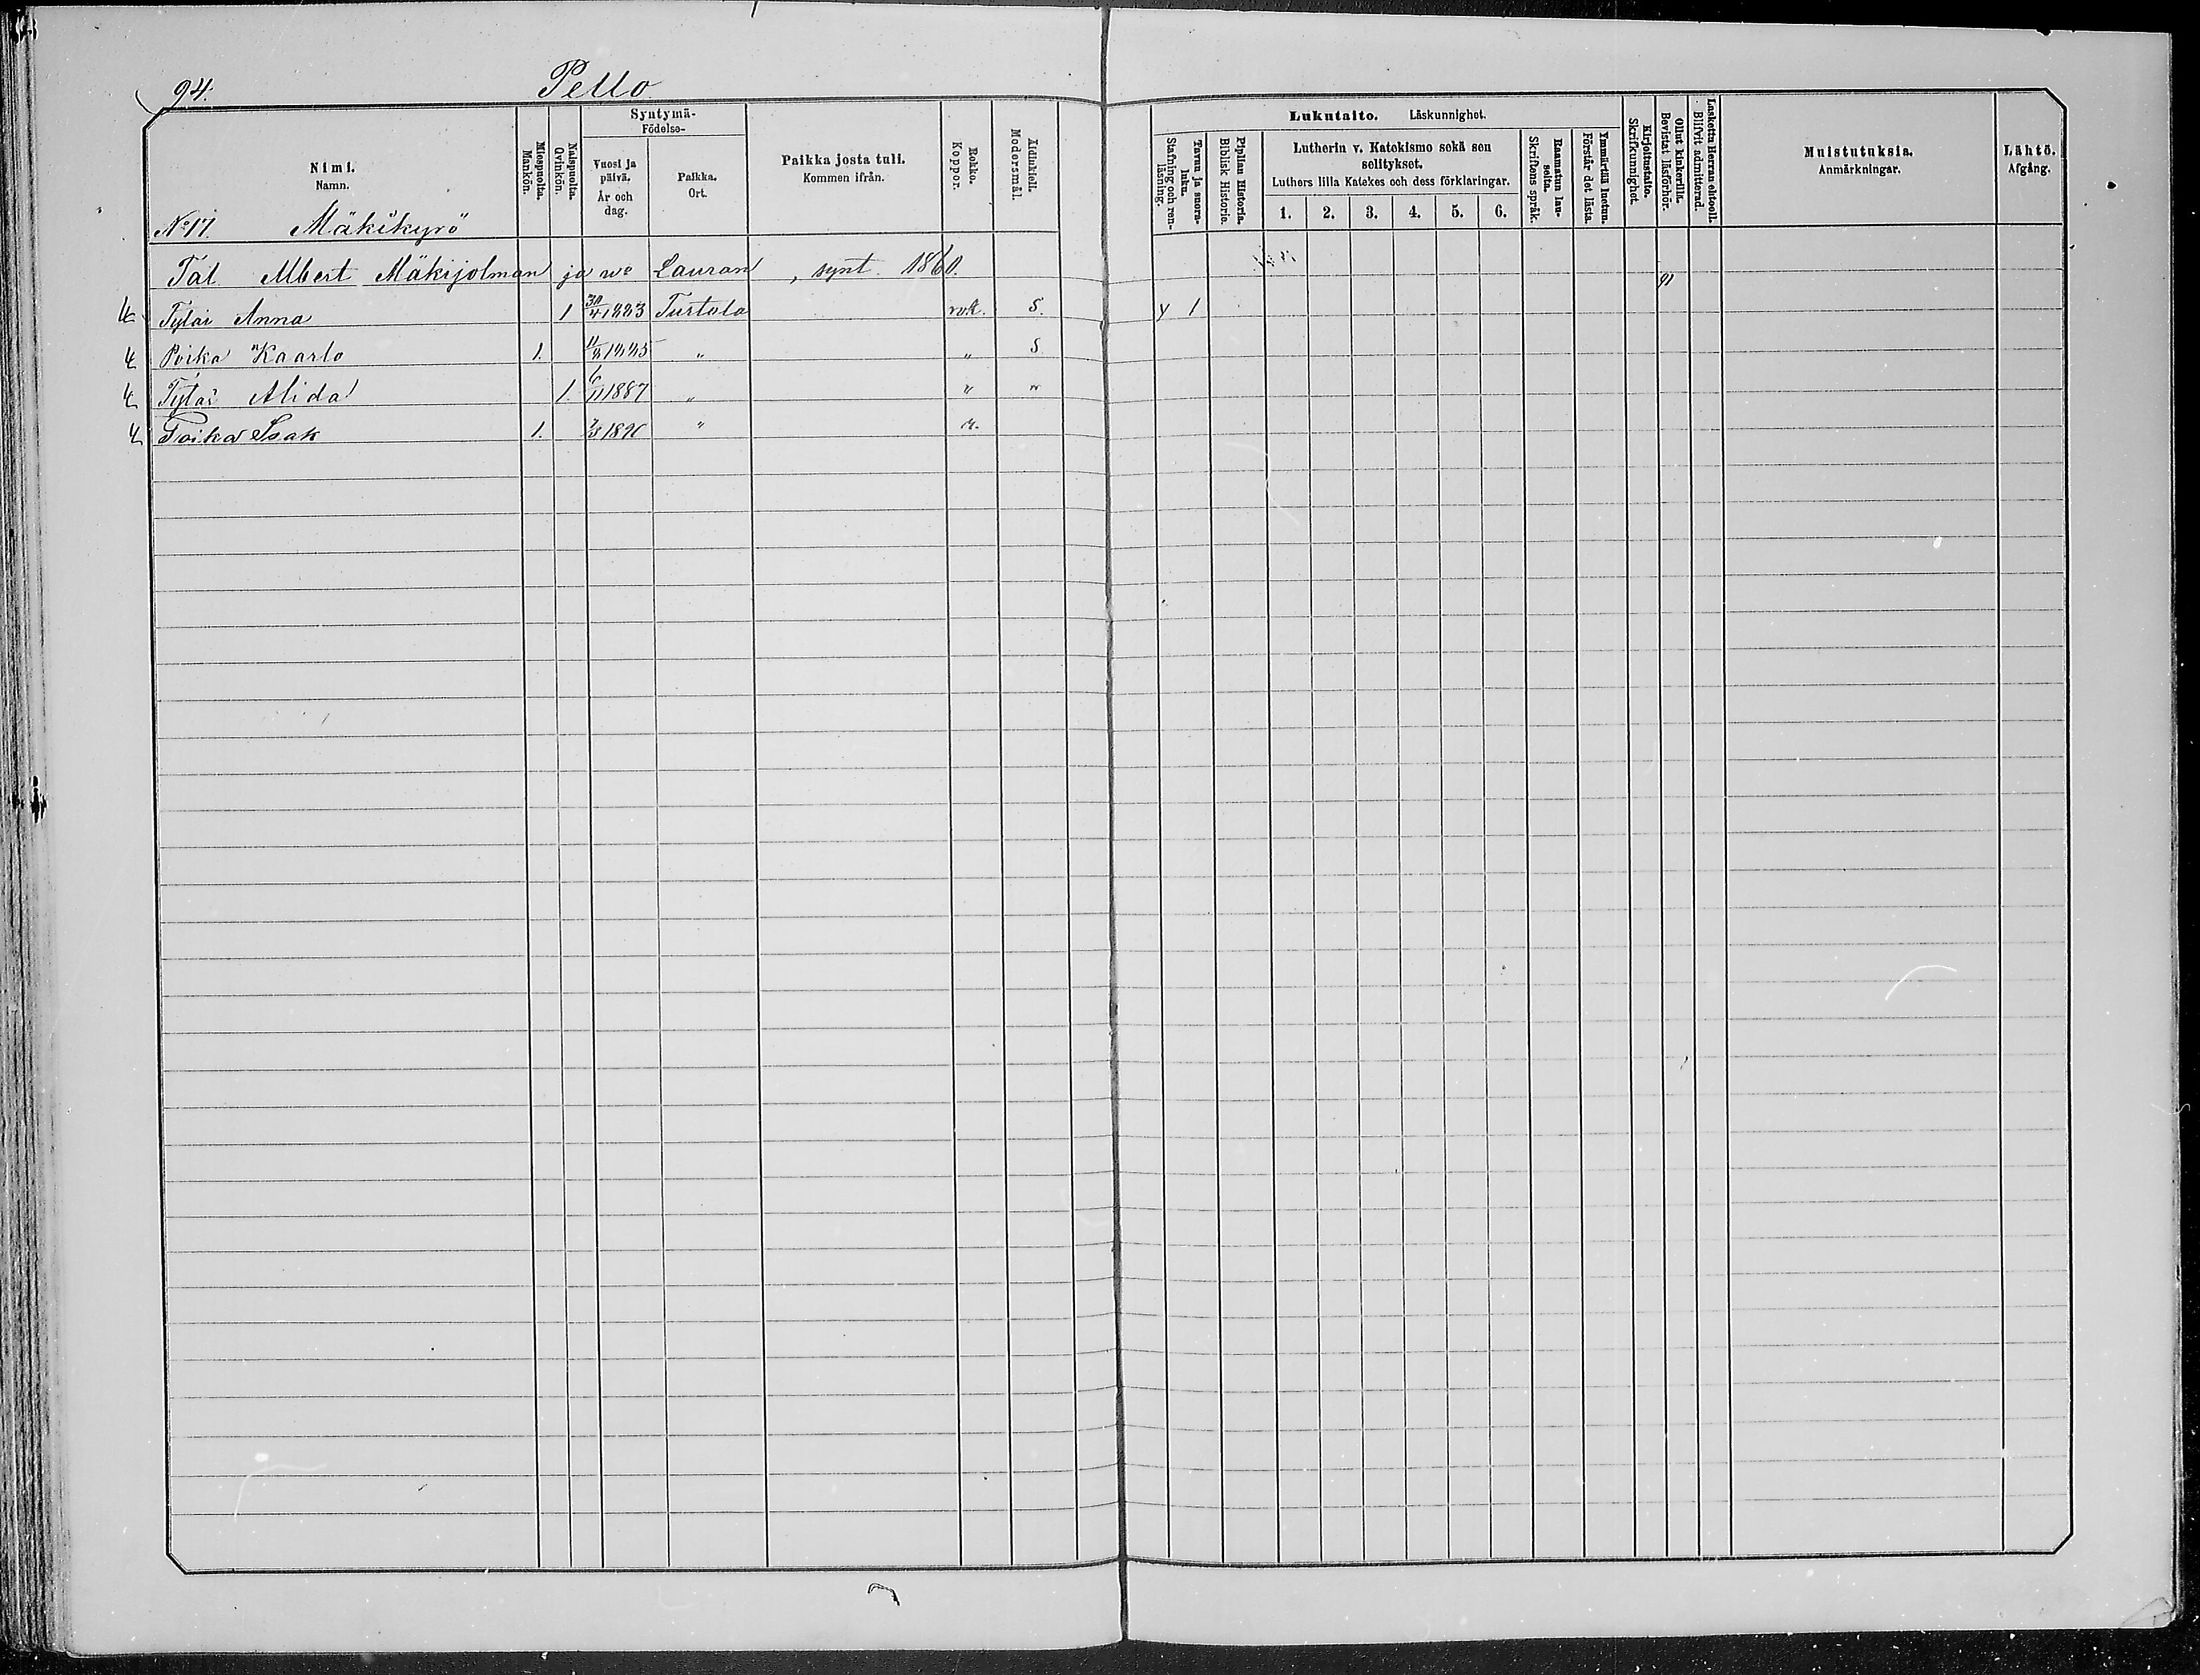 94. Pello
Nimi. Namn.
Miespuolta. Mankön.
Naispuolta. Qvinkön.
Syntymä- Födelse-
Vuosi ja päivä. År och dag.
Paikka. Ort.
Paikka josta tuli. Kommen ifrån.
Rokko. Koppor.
Äidinkieli. Modersmål.
Lukutaito. Läskunnighet.
Tavuu ja suora-luku. Stafning och ren-läsning.
Piplian Historia. Biblisk Historie.
Lutherin v. Katekismo sekä sen selitykset.
Luthers lilla Katekes och dess förklaringar.
1. 2. 3. 4. 5. 6.
Raamatun lau-seita. Skriftens språk.
Ymmärtää luetun. Förstår det lästa.
Kirjoitustaito. Skriftkunnighet.
Ollut kinkerillä. Bevistat läsförhör.
Laskettu Herran ehtooll. Blifvit admitterad.
Muistutuksia. Anmärkningar.
Lähtö. Afgång.
No 17. Mäkikyrö
Tal. Albert Mäkijolman ja wo Lauran, synt. 1860. 91
4 Tytär Anna 1 30/4 1883 Turtola rok. S. y 1
4 Poika Kaarlo 1. 11/8 1885 " " S
4 Tytär Alida 1 6/11 1887 " " "
4 Poika Isak 1. 7/3 1890 " r.